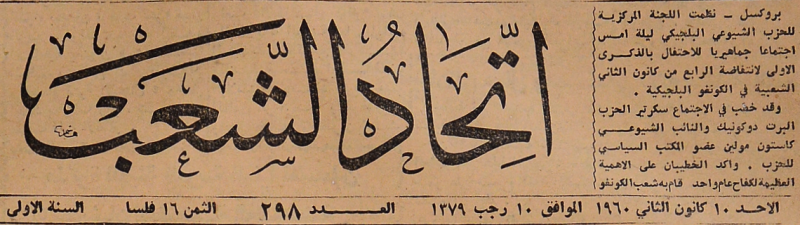 بروكسل ـ نظمت اللجنة المركزية
للحزب الشيوعي البلجيكي ليلة امس
اجتماعا جماهيريا للاحتفال بالذكرى
الاولى لانتفاضة الرابع من كانون الثاني
الشعبية في الكونغو البلجيكية .
وقد خطب في الاجتماع سكرتير الحزب
البرت دوكونيك والنائب الشيوعي
كاستون مولين عضو المكتب السياسي
للحزب . واكد الخطيبان على الاهمية
العظيمة لكفاح عام واحد قام به شعب الكونغو
اتحاد الشعب
الاحد ١٠ كانون الثاني ١٩٦٠ الموافق ١٠ رجب ١٣٧٩ العــدد ٢٩٨ الثمن ١٦ فلسا السنة الاولى